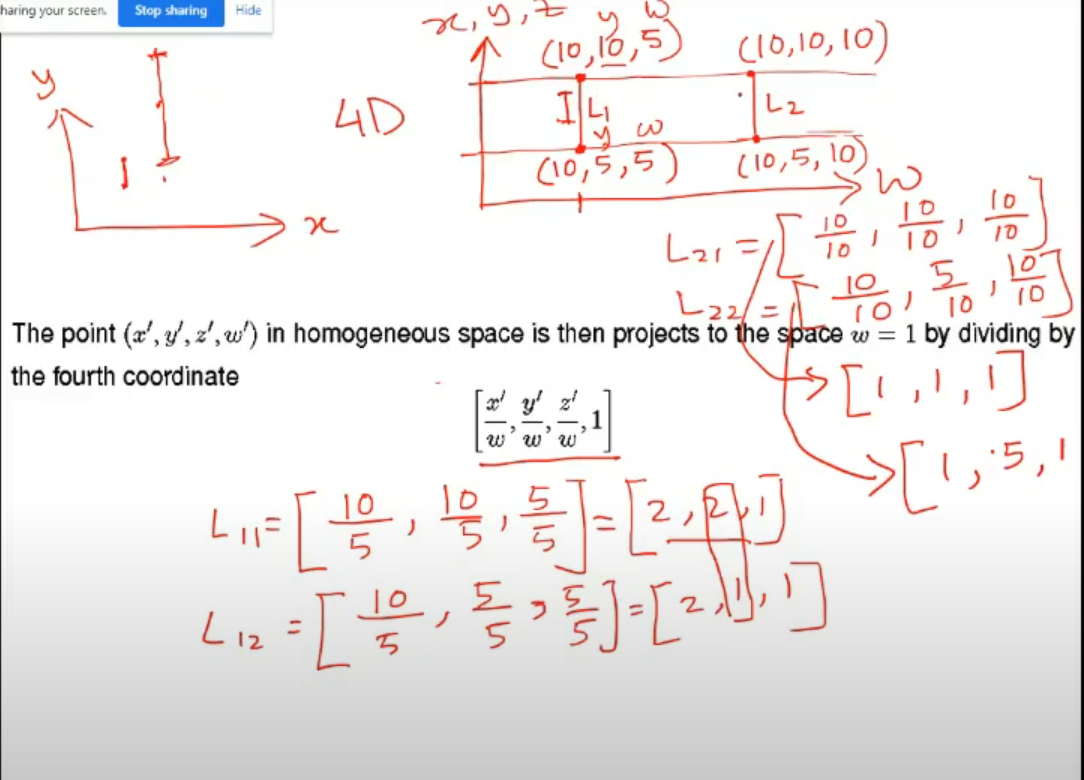 haring your screen. Stop sharing Hide
x, y, z y w
(10,10,5) (10,10,10)
y
4D
L1 L2
y w
(10,5,5) (10,5,10)
w
x
L21 = [10/10, 10/10, 10/10]
L22 = [10/10, 5/10, 10/10]
The point (x′, y′, z′, w′) in homogeneous space is then projects to the space w = 1 by dividing by
the fourth coordinate
[x′/w, y′/w, z′/w, 1]
[1, 1, 1]
[1, .5, 1
L11 = [10/5, 10/5, 5/5] = [2, 2, 1]
L12 = [10/5, 5/5, 5/5] = [2, 1, 1]